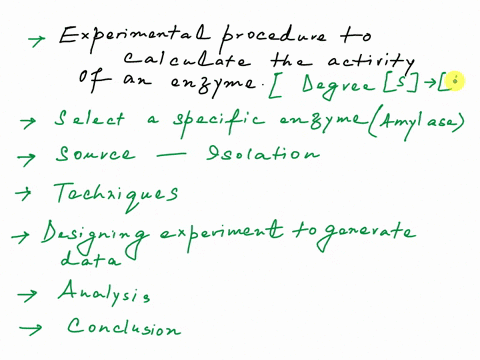 → Experimental procedure to
calculate the activity
of an enzyme. [ Degree [S] → [
→ Select a specific enzyme (Amylase)
→ Source — Isolation
→ Techniques
→ Designing experiment to generate
data
→ Analysis
→ Conclusion